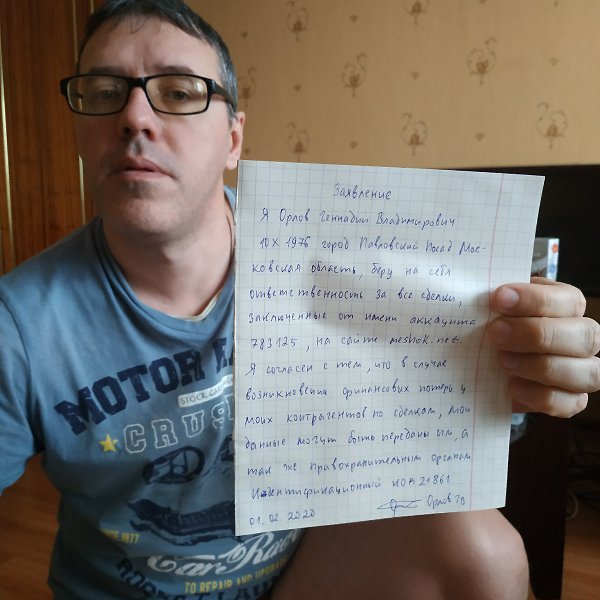 Заявление
Я Орлов Геннадий Владимирович
10 X 1976 город Павловский Посад Мос-
ковская область, беру на себя
ответственность за все сделки,
заключенные от имени аккаунта
783125, на сайте meshok.net.
Я согласен с тем, что в случае
возникновения финансовых потерь у
моих контрагентов по сделкам, мои
данные могут быть переданы им, а
так же правохранительным органам
Идентификационный 21861
01.02.2020 Орлов ГВ
MOTOR
STOCK CAR
CRUS
SINCE 1977
Car Rac
TO REPAIR AND UPGRADE